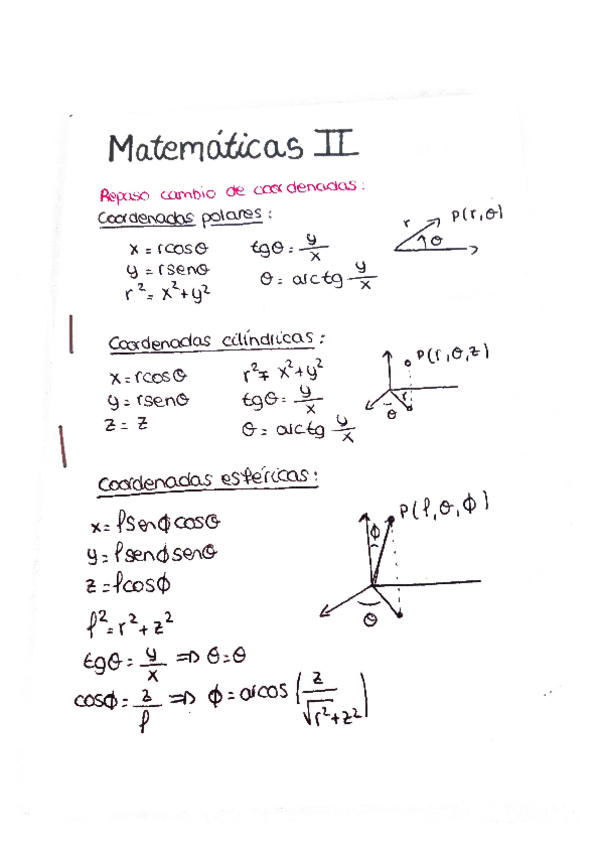 Matemáticas II
Repaso cambio de coordenadas:
Coordenadas polares:
x = rcosθ tgθ = y/x
y = rsenθ θ = arctg y/x
r² = x²+y²
r P(r,θ)
θ
Coordenadas cilíndricas:
x = rcosθ r² = x²+y²
y = rsenθ tgθ = y/x
z = z θ = arctg y/x
P(r,θ,z)
r
θ
Coordenadas esféricas:
x = ρsenϕcosθ
y = ρsenϕsenθ
z = ρcosϕ
ρ² = r²+z²
tgθ = y/x ⇒ θ=θ
cosϕ = z/ρ ⇒ ϕ = arcos (z/√r²+z²)
P(ρ,θ,ϕ)
ϕ
θ